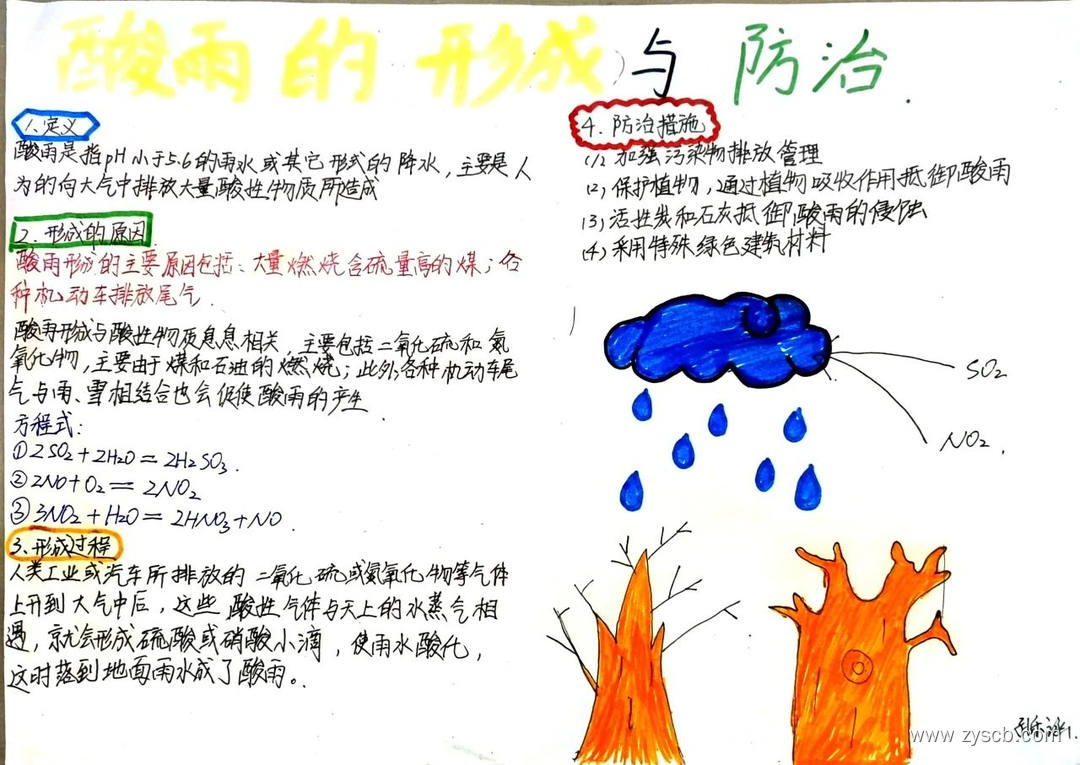 酸雨的形成与防治.
1、定义
酸雨是指pH小于5.6的雨水或其它形式的降水，主要是人
为的向大气中排放大量酸性物质所造成
2、形成的原因
酸雨形成的主要原因包括：大量燃烧含硫量高的煤；各
种机动车排放尾气.
酸雨形成与酸性物质息息相关，主要包括二氧化硫和氮
氧化物，主要由于煤和石油的燃烧；此外,各种机动车尾
气与雨、雪相结合也会促使酸雨的产生.
方程式：
①2SO₂+2H₂O=2H₂SO₃.
②2NO+O₂=2NO₂
③3NO₂+H₂O=2HNO₃+NO.
3、形成过程
人类工业或汽车所排放的二氧化硫或氮氧化物等气体
上升到大气中后，这些酸性气体与天上的水蒸气相
遇，就会形成硫酸或硝酸小滴，使雨水酸化，
这时落到地面雨水成了酸雨。
4、防治措施
(1)加强污染物排放管理
(2)保护植物，通过植物吸收作用抵御酸雨
(3)活性炭和石灰抵御酸雨的侵蚀
(4)采用特殊绿色建筑材料
SO₂
NO₂.
www.zyscb.com